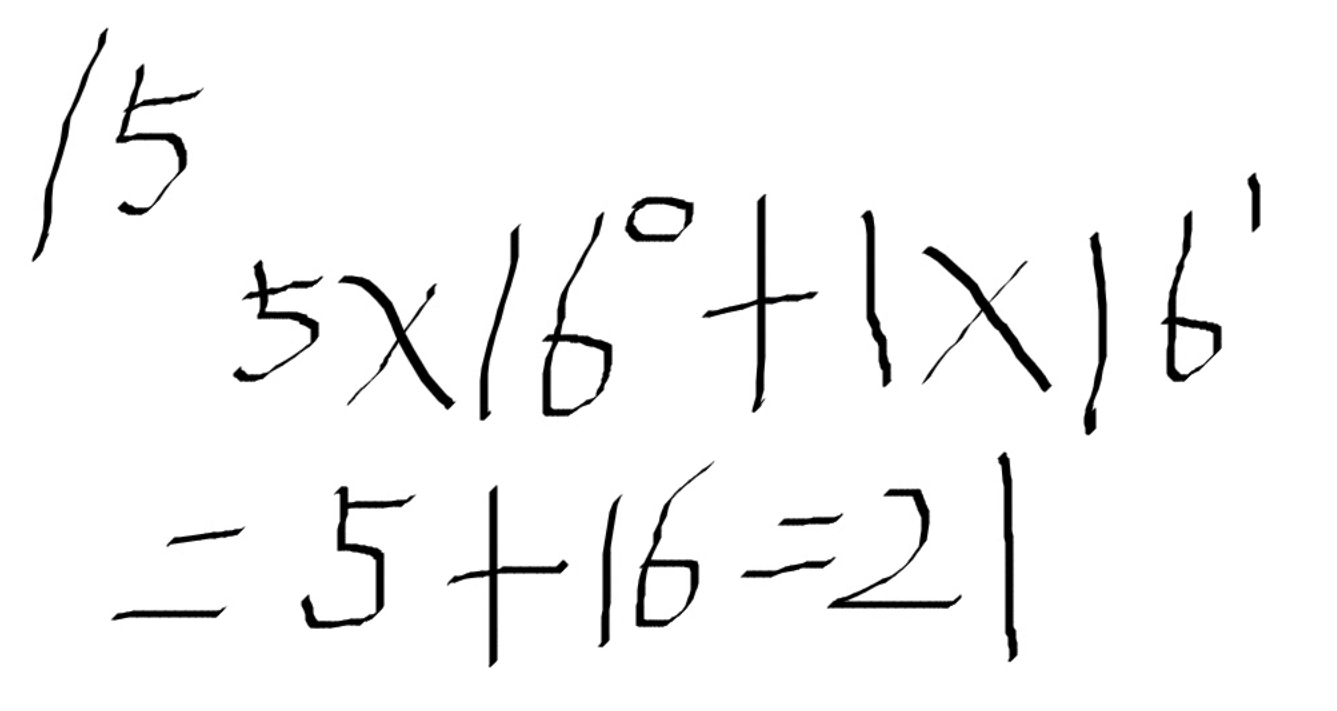 15
5×16⁰+1×16¹
=5+16=21